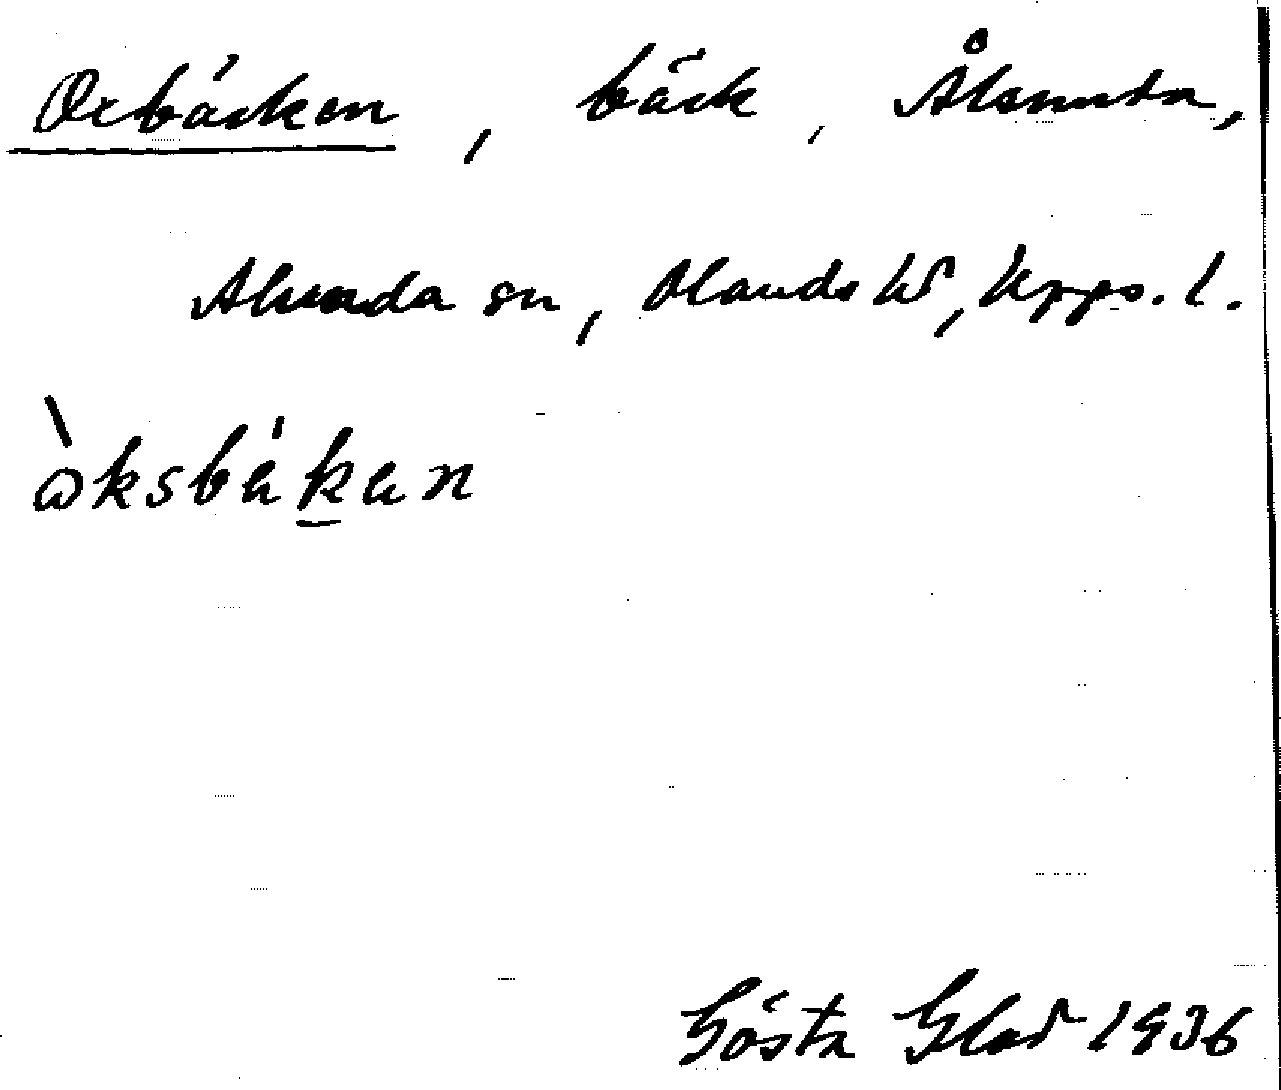 Oxbäcken, bäck, Ålsunda,
Alunda sn, Olands hd, Upps. l.
òksbäkan
Gösta Glad 1936